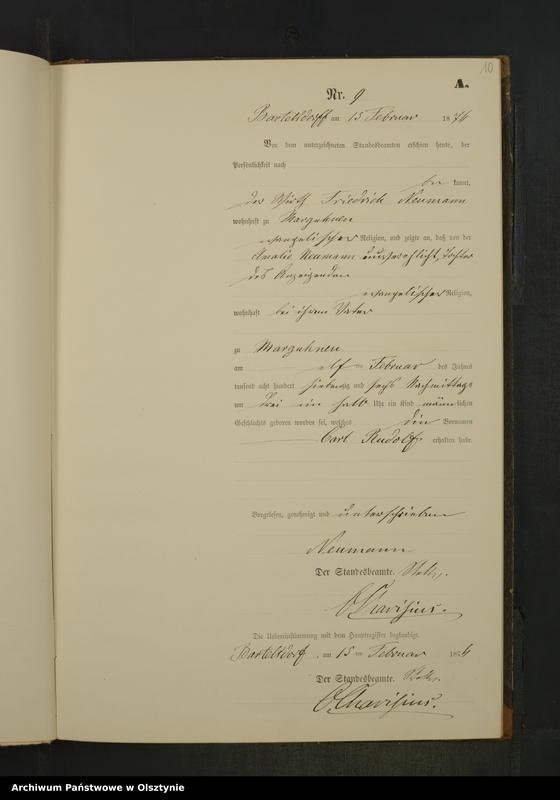 10
A.
Nr. 9
Bartelsdorff am 15 Februar 1876
Vor dem unterzeichneten Standesbeamten erschien heute, der
Persönlichkeit nach
be kannt,
der Wirth Friedrich Neumann
wohnhaft zu Marguhnen
evangelischer Religion, und zeigte an, daß von der
Amalie Neumann unverehlicht, Tochter
des Anzeigenden
evangelischer Religion,
wohnhaft bei ihrem Vater
zu Marguhnen
am elf ten Februar des Jahres
tausend acht hundert siebenzig und sechs Nachmittags
um drei ein halb Uhr ein Kind männlichen
Geschlechts geboren worden sei, welches die Vornamen
Carl Rudolf erhalten habe.
Vorgelesen, genehmigt und unterschrieben
Neumann
Der Standesbeamte.
Die Uebereinstimmung mit dem Hauptregister beglaubigt.
Bartelsdorf, am 15 ten Februar 1876
Der Standesbeamte.
Archiwum Państwowe w Olsztynie